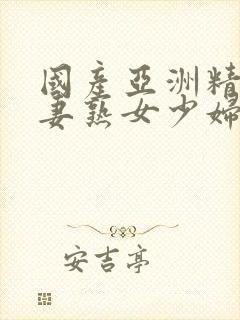 國產亞洲精
妻熟女少婦
安吉亭